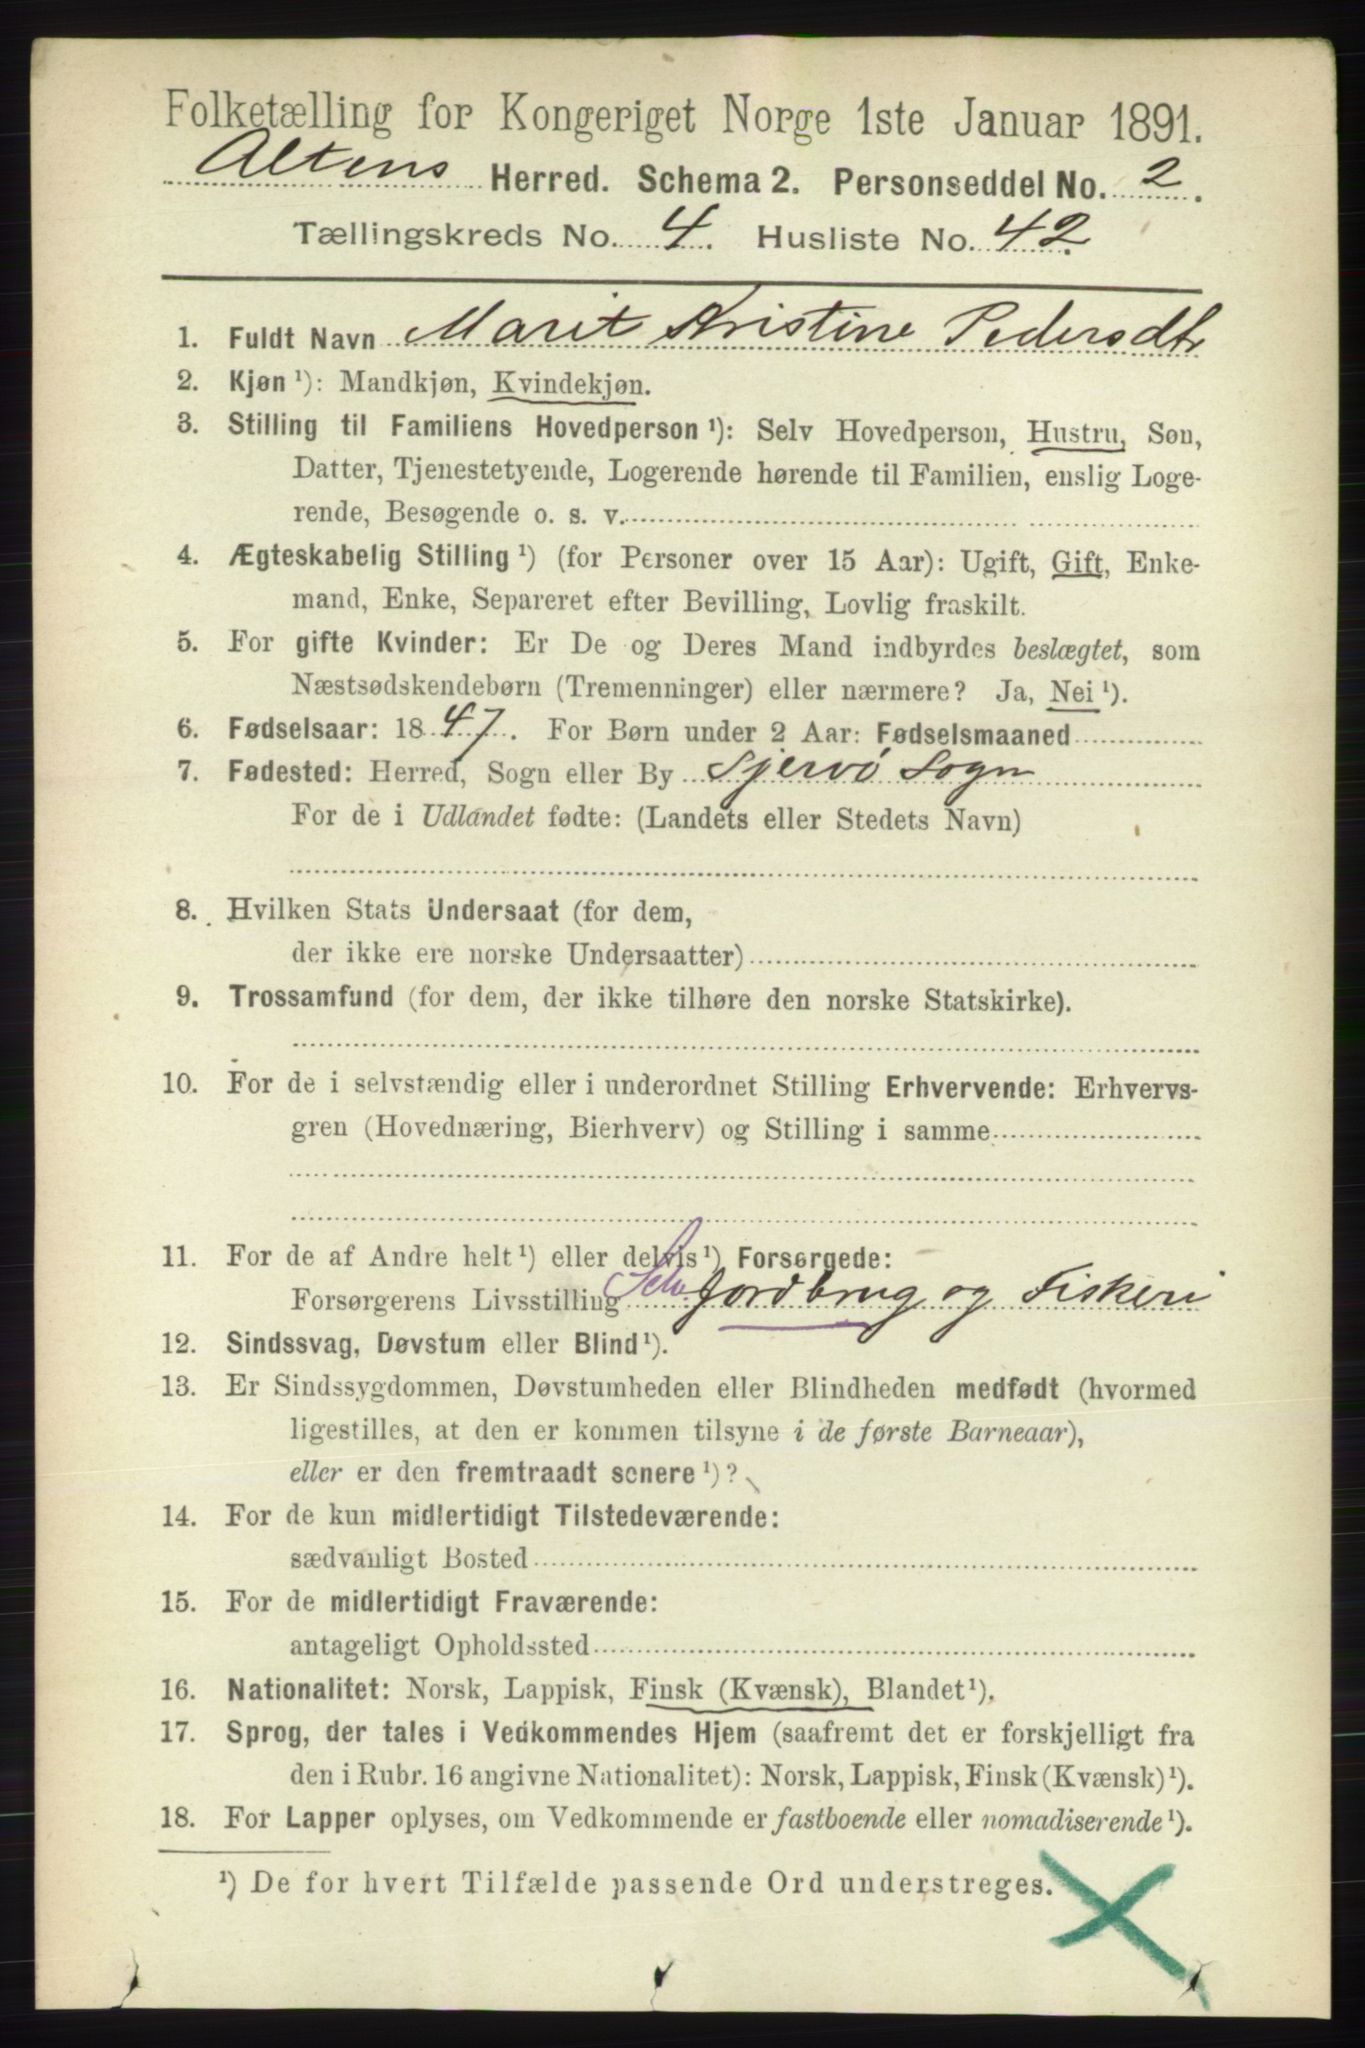 Folketælling for Kongeriget Norge 1ste Januar 1891.
Altens Herred. Schema 2. Personseddel No. 2.
Tællingskreds No. 4. Husliste No. 42.
1. Fuldt Navn Marit Kristine Pedersdtr
2. Kjøn ¹): Mandkjøn, Kvindekjøn.
3. Stilling til Familiens Hovedperson ¹): Selv Hovedperson, Hustru, Søn,
Datter, Tjenestetyende, Logerende hørende til Familien, enslig Loge-
rende, Besøgende o. s. v.
4. Ægteskabelig Stilling ¹) (for Personer over 15 Aar): Ugift, Gift, Enke-
mand, Enke, Separeret efter Bevilling, Lovlig fraskilt.
5. For gifte Kvinder: Er De og Deres Mand indbyrdes beslægtet, som
Næstsødskendebørn (Tremenninger) eller nærmere? Ja, Nei ¹).
6. Fødselsaar: 1847. For Børn under 2 Aar: Fødselsmaaned
7. Fødested: Herred, Sogn eller By Sjervø Sogn
For de i Udlandet fødte: (Landets eller Stedets Navn)
8. Hvilken Stats Undersaat (for dem,
der ikke ere norske Undersaatter)
9. Trossamfund (for dem, der ikke tilhøre den norske Statskirke).
10. For de i selvstændig eller i underordnet Stilling Erhvervende: Erhvervs-
gren (Hovednæring, Bierhverv) og Stilling i samme
11. For de af Andre helt ¹) eller delvis ¹) Forsørgede:
Forsørgerens Livsstilling Selv. Jordbrug og Fiskeri
12. Sindssvag, Døvstum eller Blind ¹).
13. Er Sindssygdommen, Døvstumheden eller Blindheden medfødt (hvormed
ligestilles, at den er kommen tilsyne i de første Barneaar),
eller er den fremtraadt senere ¹)?
14. For de kun midlertidigt Tilstedeværende:
sædvanligt Bosted
15. For de midlertidigt Fraværende:
antageligt Opholdssted
16. Nationalitet: Norsk, Lappisk, Finsk (Kvænsk), Blandet ¹).
17. Sprog, der tales i Vedkommendes Hjem (saafremt det er forskjelligt fra
den i Rubr. 16 angivne Nationalitet): Norsk, Lappisk, Finsk (Kvænsk) ¹).
18. For Lapper oplyses, om Vedkommende er fastboende eller nomadiserende ¹).
¹) De for hvert Tilfælde passende Ord understreges.